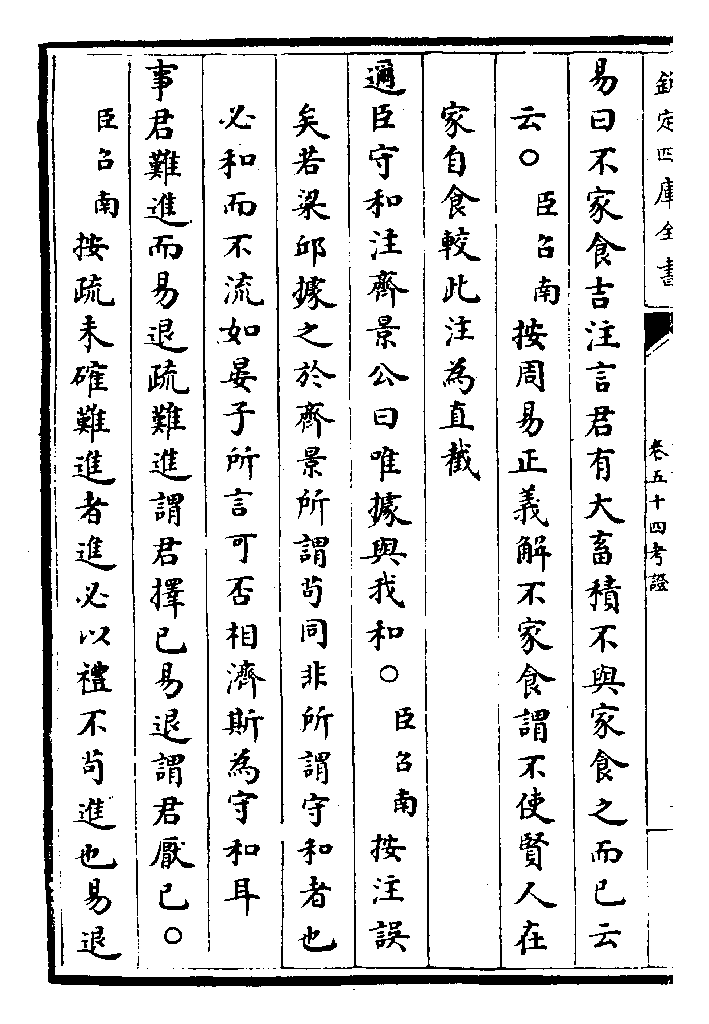 欽定四庫全書
卷五十四考證
易曰不家食吉注言君有大畜積不與家食之而已云
云○臣召南按周易正義解不家食謂不使賢人在
家自食較此注為直截
邇臣守和注齊景公曰唯據與我和○臣召南按注誤
矣若梁邱據之於齊景所謂茍同非所謂守和者也
必和而不流如晏子所言可否相濟斯為守和耳
事君難進而易退疏難進謂君擇已易退謂君厭已○
臣召南按疏未確難進者進必以禮不茍進也易退